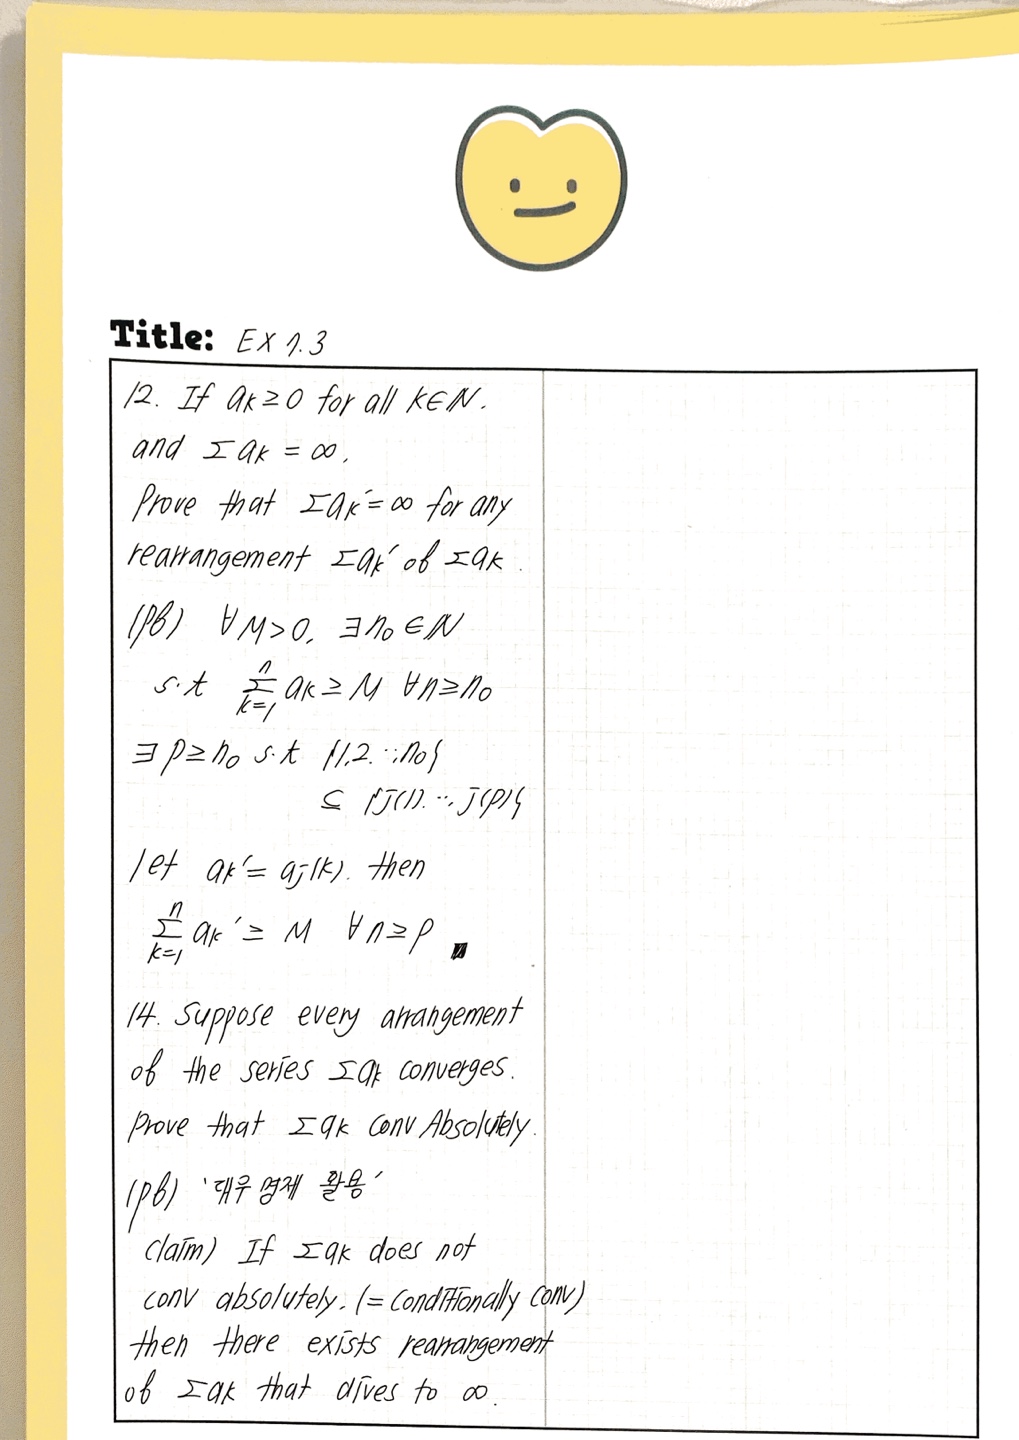 Title: EX 1.3
12. If ak ≥ 0 for all k∈N.
and Σak = ∞.
Prove that Σak′ = ∞ for any
rearrangement Σak′ of Σak.
(pf) ∀M>0, ∃n₀∈N
s.t Σ_{k=1}^{n} ak ≥ M ∀n≥n₀
∃p≥n₀ s.t {1,2,…,n₀}
⊆ {j(1),…,j(p)}
let ak′ = aj(k). then
Σ_{k=1}^{n} ak′ ≥ M ∀n≥p ∎
14. Suppose every arrangement
of the series Σak converges.
Prove that Σak conv Absolutely.
(pf) '대우 명제 활용'
claim) If Σak does not
conv absolutely. (= conditionally conv)
then there exists rearrangement
of Σak that dives to ∞.